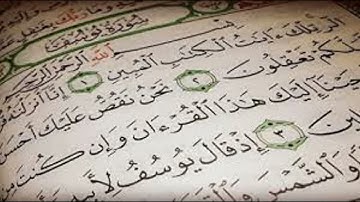 سُورَةُ يُوسُفَ
بِسْمِ اللَّهِ الرَّحْمَٰنِ
الٓر تِلْكَ ءَايَٰتُ الْكِتَٰبِ الْمُبِينِ ١ إِنَّآ أَنزَلْنَٰهُ
لَّعَلَّكُمْ تَعْقِلُونَ ٢ نَحْنُ نَقُصُّ عَلَيْكَ أَحْسَنَ
إِلَيْكَ هَٰذَا الْقُرْءَانَ وَإِن كُنتَ مِن
٣ إِذْ قَالَ يُوسُفُ لِأَبِيهِ
وَالشَّمْسَ وَالْقَمَرَ